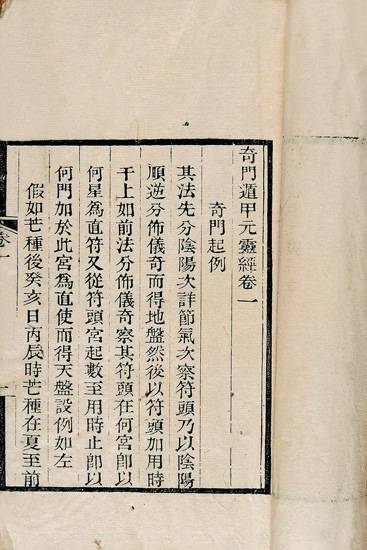 奇門遁甲元靈經卷一
奇門起例
其法先分陰陽次詳節氣次察符頭乃以陰陽
順逆分佈儀奇而得地盤然後以符頭加用時
干上如前法分佈儀奇察其符頭在何宮卽以
何星爲直符又從符頭宮起數至用時止卽以
何門加於此宮爲直使而得天盤設例如左
假如芒種後癸亥日丙辰時芒種在夏至前
卷一
一